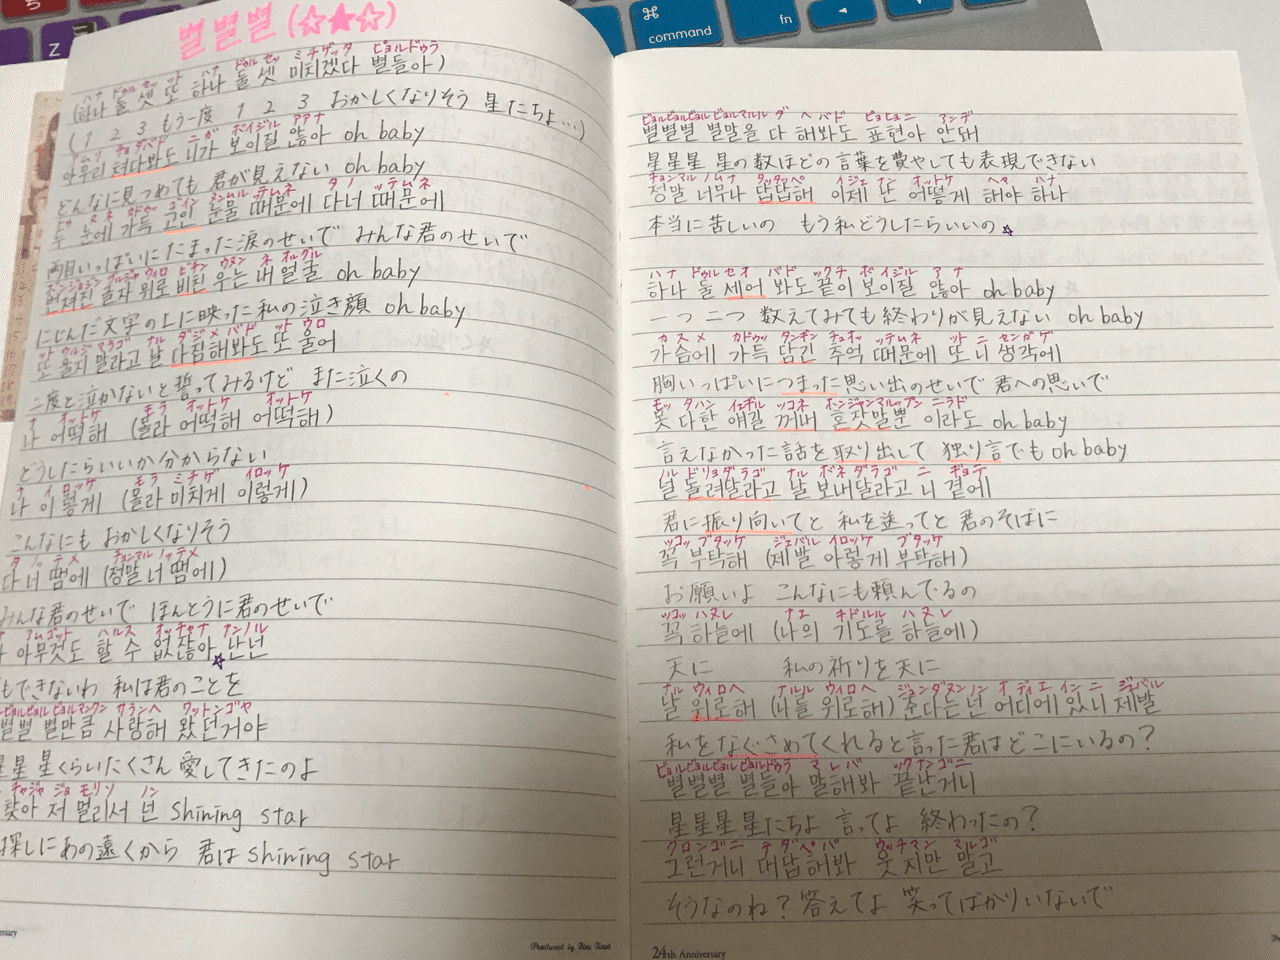 별별별 (☆★☆)
ハナ ドゥル セッ ット ハナ ドゥル セッ ミチゲッタ ピョルドゥラ
(하나 둘 셋 또 하나 둘 셋 미치겠다 별들아)
(1 2 3 もう一度 1 2 3 おかしくなりそう 星たちよ…)
아무리 쳐다봐도 니가 보이질 않아 oh baby
どんなに見つめても 君が見えない oh baby
두 눈에 가득 고인 눈물 때문에 다 너 때문에
両目いっぱいにたまった涙のせいで みんな君のせいで
번져진 글자 위로 비친 우는 내 얼굴 oh baby
にじんだ文字の上に映った私の泣き顔 oh baby
또 울지 말라고 날 다짐해봐도 또 울어
二度と泣かないと誓ってみるけど また泣くの
ナ オットケ モラ オットケ オットケ
나 어떡해 (몰라 어떡해 어떡해)
どうしたらいいか分からない
ナ イロッケ モラ ミチゲ イロッケ
나 이렇게 (몰라 미치게 이렇게)
こんなにも おかしくなりそう
タ ノ ッテメ チョンマル ノ ッテメ
다 너 땜에 (정말 너 땜에)
みんな君のせいで ほんとうに君のせいで
アムゴット ハルス オッチャナ ナンノル
아무것도 할 수 없잖아 난 넌
もできないわ 私は君のことを
별별 별만큼 사랑해 왔던거야
星星 星くらいたくさん 愛してきたのよ
チャジャ ジョ モリソ ノン
찾아 저 멀리서 넌 shining star
探しにあの遠くから 君は shining star
ersary
Produced by
ピョルピョルピョル ピョルマルル ダ ヘバド ピョヒョニ アンデ
별별별 별말을 다 해봐도 표현이 안돼
星星星 星の数ほどの言葉を費やしても表現できない
정말 너무나 답답해 이제 또 어떻게 해야 하나
本当に苦しいの もう私どうしたらいいの☆
ハナ ドゥル セオ バド ックチ ボイジル アナ
하나 둘 세어 봐도 끝이 보이질 않아 oh baby
一つ 二つ 数えてみても終わりが見えない oh baby
カスメ カドゥッ タンギン チュオッ ッテムネ ット ニ センガゲ
가슴에 가득 담긴 추억 때문에 또 니 생각에
胸いっぱいにつまった思い出のせいで 君への思いで
モッ タハン イェギル ッコネ ホンジャンマルップン ニラド
못 다한 얘길 꺼내 혼잣말뿐 이라도 oh baby
言えなかった話を取り出して 独り言でも oh baby
ノル ドリョダラゴ ナル ボネダラゴ ニ ギョテ
널 돌려달라고 날 보내달라고 니 곁에
君に振り向いてと 私を送ってと 君のそばに
ッコッ ブタッケ ジェバル イロッケ ブタッケ
꼭 부탁해 (제발 이렇게 부탁해)
お願いよ こんなにも頼んでるの
ッコッ ハヌレ ナエ キドルル ハヌレ
꼭 하늘에 (나의 기도를 하늘에)
天に 私の祈りを天に
ナル ウィロヘ ナルル ウィロヘ ジュンダヌン ノン オディエ インニ ジェバル
날 위로해 (나를 위로해) 준다는 넌 어디에 있니 제발
私をなぐさめてくれると言った君はどこにいるの?
ピョルピョルピョル ピョルドゥラ マレバ ックンナンゴニ
별별별 별들아 말해봐 끝난거니
星星星 星たちよ 言ってよ 終わったの?
グロンゴニ テダペバ ウッチマン マルゴ
그런거니 대답해봐 웃지만 말고
そうなのね? 答えてよ 笑ってばかりいないで
24th Anniversary
Z
⌘
command
fn